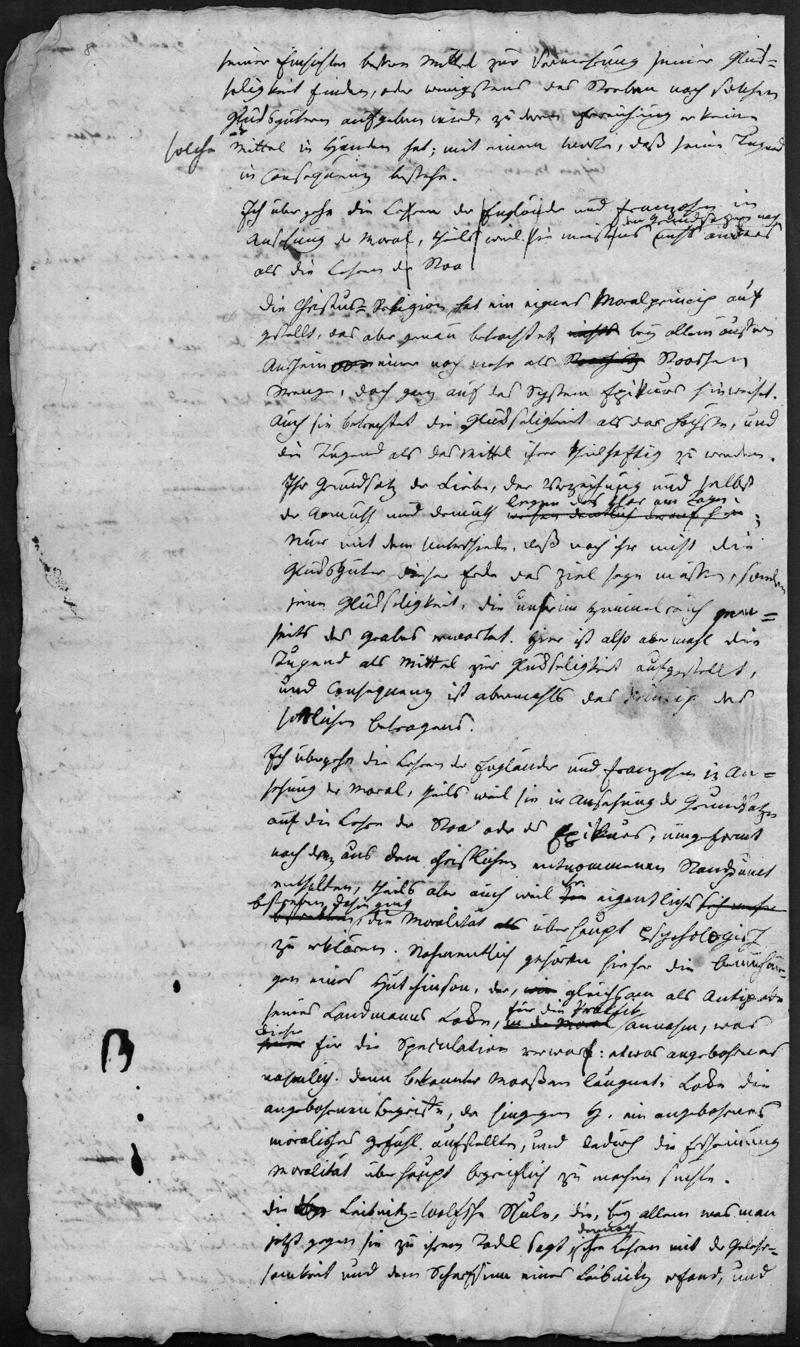 seiner Einsichten besten Mittel zur Vermehrung seiner Glück=
seligkeit finden, oder wenigstens das Streben nach solchen
Glücksgütern aufgeben wird, zu deren Erreichung er keine
solche Mittel in Händen hat; mit einem Worte, daß seine Tugend
in Consequenz bestehe.
Ich übergehe die Lehren der Engländer und Franzosen in
Ansehung der Moral, theils weil sie meistens den Grundsätzen nach nichts anders
als die Lehren der Stoa
Die Christus=Religion hat ein eigenes Moralprincip auf
gestellt, das aber genau betrachtet, nicht bey allem äußern
Anschein von einer noch mehr als Stoischen
Strenge, doch ganz auf das System Epikurs hinweiset.
Auch sie betrachtet die Glückseligkeit als das Höchste, und
die Tugend als das Mittel ihrer theilhaftig zu werden.
Ihr Grundsatz der Liebe, der Verzeihung und selbst
der Armuth und Demuth legen das klar am Tage;
weisen deutlich darauf hin
Nur mit dem Unterschiede, daß nach ihr nicht die
Glücksgüter dieser Erde das Ziel seyn müssen, sondern
jene Glückseligkeit, die unser im Himmelreich jen=
seits des Grabes erwartet. Hier ist also abermahl die
Tugend als Mittel zur Glückseligkeit aufgestellt,
und Consequenz ist abermahls das Princip des
sittlichen Betragens.
Ich übergehe die Lehren der Engländer und Franzosen in An=
sehung der Moral, theils weil sie in Ansehung der Grundsätze
auf die Lehre der Stoa oder des Epikurs, umgeformt
nach dem aus dem christlichen entnommenen Standpunct
enthalten, theils aber auch weil sie eigentlich
bestreben dahin ging, die Moralität als überhaupt psychologisch
zu erklären. Nahmentlich gehören hieher die Bemühun=
gen eines Hutchinson, der, wie gleichsam als Antipode
seines Landmanns Locke, für die Praktik annahm, was
dieser für die Speculation verwarf: etwas angebohrenes
nahmlich. Denn bekannter Maaßen läugnete Locke die
angebohrenen Begriffe, da hingegen H. ein angebohrenes
moralisches Gefühl aufstellte, und dadurch die Erscheinung
Moralität überhaupt begreiflich zu machen suchte.
Die Leibnitz=Wolfsche Schule, die, bey allem was man
jetzt gegen sie zu ihrem Tadel sagt, dennoch ihre Lehren mit der Gelehr=
samkeit und dem Scharfsinn eines Leibnitz erfand, und